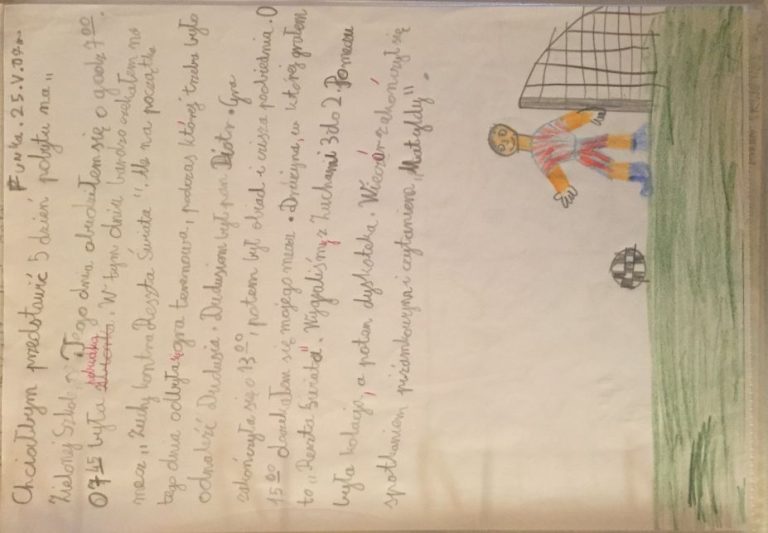 Funka. 25.V.07r.
Chciałbym przedstawić 5 dzień pobytu na „
Zielonej Szkole”. Tego dnia obudziłem się o godz 7⁰⁰.
07⁴⁵ była pobudka. W tym dniu bardzo czekałem na
mecz „Zuchy kontra Reszta Świata”. Ale na początku
tego dnia odbyła się gra terenowa, podczas której trzeba było
odnaleźć Dudusia. Dudusiem był pan Piotr. Gra
zakończyła się o 13⁰⁰, potem był obiad i cisza poobiednia. O
15⁰⁰ doczekałem się mojego meczu. Drużyna, w której grałem
to „Reszta Świata”. Wygraliśmy z Zuchami 3 do 2. Po meczu
była kolacja, a potem dyskoteka. Wieczór zakończył się
spotkaniem piżamkowym i czytaniem „Matyldy”.